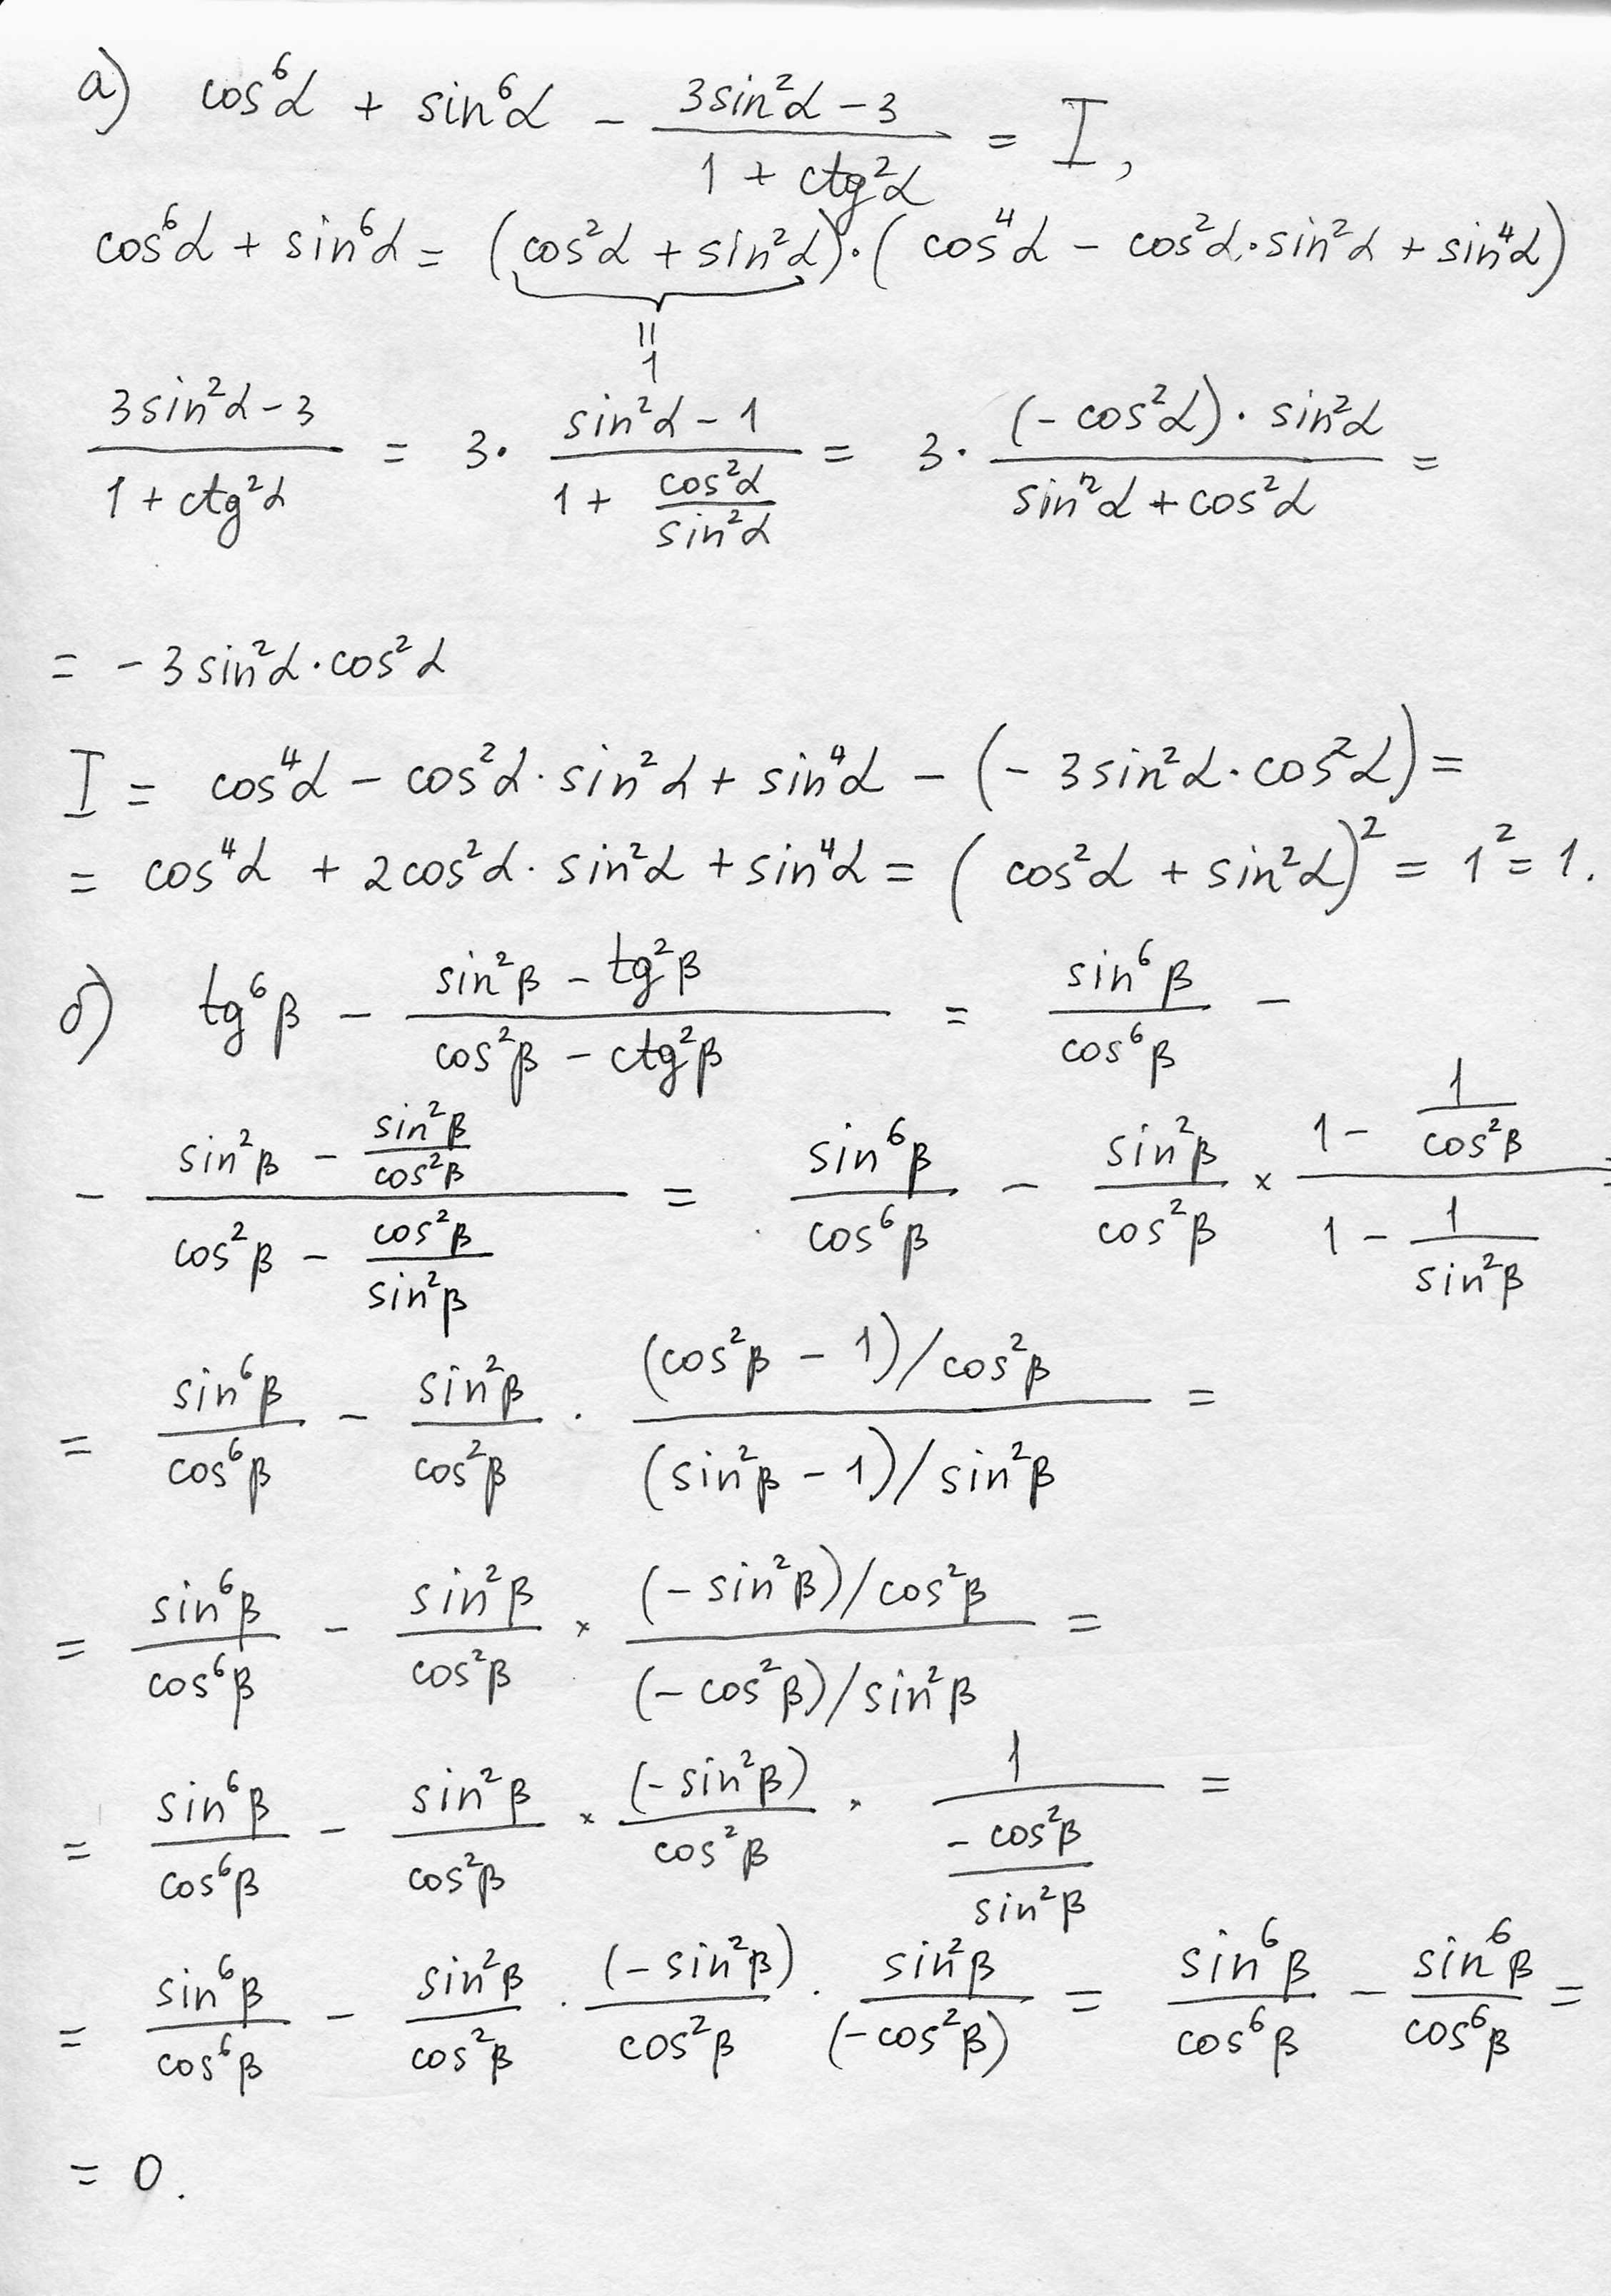 а) cos⁶α + sin⁶α − (3sin²α − 3)/(1 + ctg²α) = I,
cos⁶α + sin⁶α = (cos²α + sin²α)·(cos⁴α − cos²α·sin²α + sin⁴α)
= 1
(3sin²α − 3)/(1 + ctg²α) = 3· (sin²α − 1)/(1 + cos²α/sin²α) = 3· ((−cos²α)·sin²α)/(sin²α + cos²α) =
= −3sin²α·cos²α
I = cos⁴α − cos²α·sin²α + sin⁴α − (−3sin²α·cos²α) =
= cos⁴α + 2cos²α·sin²α + sin⁴α = (cos²α + sin²α)² = 1² = 1.
б) tg⁶β − (sin²β − tg²β)/(cos²β − ctg²β) = sin⁶β/cos⁶β −
− (sin²β − sin²β/cos²β)/(cos²β − cos²β/sin²β) = sin⁶β/cos⁶β − sin²β/cos²β × (1 − 1/cos²β)/(1 − 1/sin²β) =
= sin⁶β/cos⁶β − sin²β/cos²β · ((cos²β − 1)/cos²β)/((sin²β − 1)/sin²β) =
= sin⁶β/cos⁶β − sin²β/cos²β × ((−sin²β)/cos²β)/((−cos²β)/sin²β) =
= sin⁶β/cos⁶β − sin²β/cos²β × (−sin²β)/cos²β · 1/(−cos²β/sin²β) =
= sin⁶β/cos⁶β − sin²β/cos²β · (−sin²β)/cos²β · sin²β/(−cos²β) = sin⁶β/cos⁶β − sin⁶β/cos⁶β =
= 0.